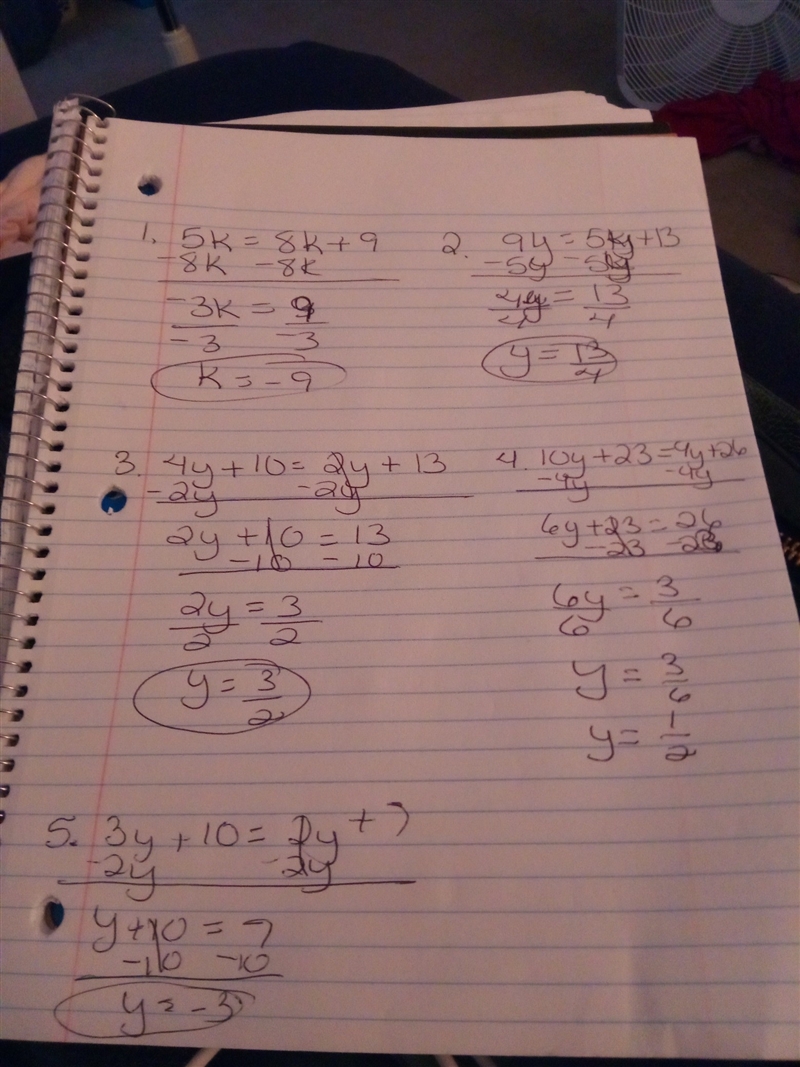 1. 5k = 8k + 9
-8k -8k
-3k = 9
-3 -3
k = -9
2. 9y = 5y + 13
-5y -5y
4y = 13
4 4
y = 13/4
3. 4y + 10 = 2y + 13
-2y -2y
2y + 10 = 13
-10 -10
2y = 3
2 2
y = 3/2
4. 10y + 23 = 4y + 26
-4y -4y
6y + 23 = 26
-23 -23
6y = 3
6 6
y = 3/6
y = 1/2
5. 3y + 10 = 2y + 7
-2y -2y
y + 10 = 7
-10 -10
y = -3